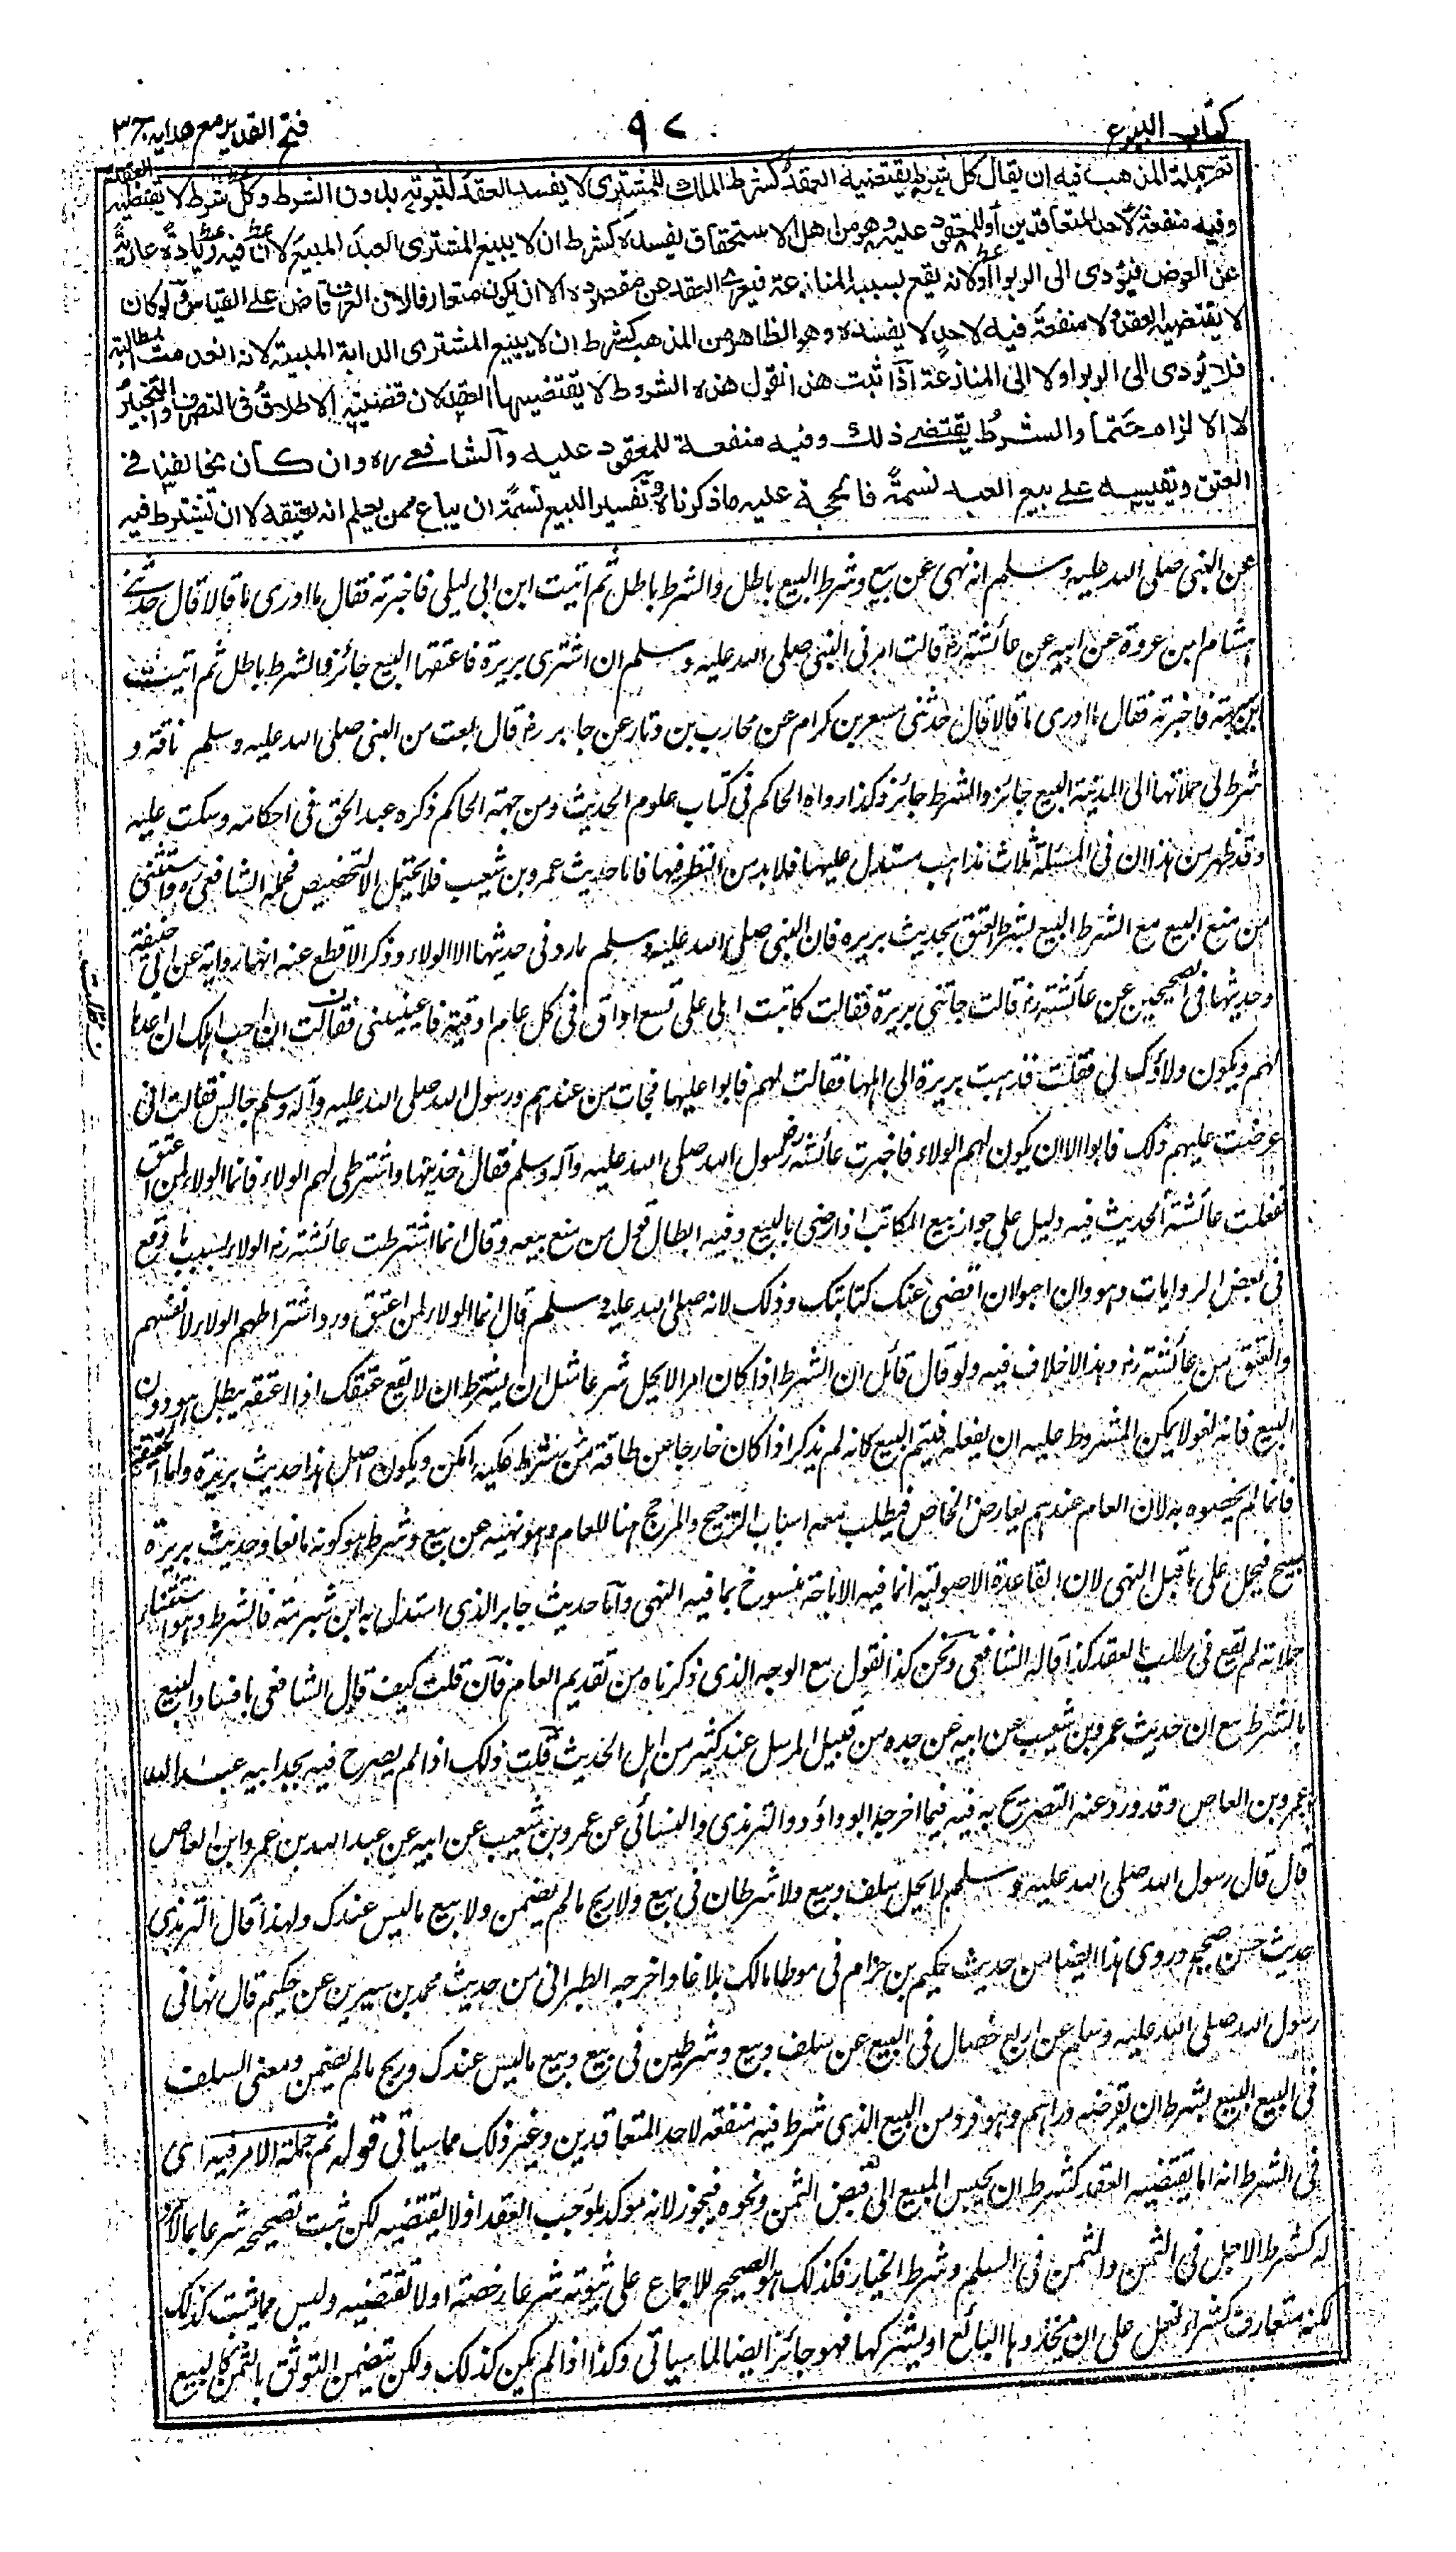 كتاب البيوع
٩٧
فتح القدير مع هدايه ج ٣
ثم جملة المذهب فيه ان يقال كل شرط يقتضيه العقد كشرط الملك للمشترى لا يفسد العقد لثبوته بدون الشرط وكل شرط لا يقتضيه العقد
وفيه منفعة لاحد المتعاقدين او للمعقود عليه وهو من اهل الاستحقاق يفسده كشرط ان لا يبيع المشترى العبد المبيع لان فيه زيادة عارية
عن العوض فيؤدى الى الربوا او لانه يقع بسببه المنازعة فيعرى العقد عن مقصوده الا ان يكون متعارفا لان العرف قاض على القياس ولو كان
لا يقتضيه العقد ولا منفعة فيه لاحد لا يفسده وهو الظاهر من المذهب كشرط ان لا يبيع المشترى الدابة المبيعة لانه انعدمت المطالبة
فلا يؤدى الى الربوا ولا الى المنازعة اذا ثبت هذا نقول هذه الشروط لا يقتضيها العقد لان قضيته الاطلاق فى التصرف والتخيير
لا الالزام حتما والشرط يقتضى ذلك وفيه منفعة للمعقود عليه والشافعى ره وان كان يخالفنا فى
العتق ويقيسه على بيع العبد نسمة فالحجة عليه ما ذكرناه وتفسير البيع نسمة ان يباع ممن يعلم انه يعتقه لا ان تشترط فيه
عن النبى صلى الله عليه وسلم انه نهى عن بيع وشرط البيع باطل والشرط باطل ثم اتيت ابن ابى ليلى فاخبرته فقال ما ادرى ما قالا قال حدثنى
هشام ابن عروة عن ابيه عن عائشة رض قالت امرنى النبى صلى الله عليه وسلم ان اشترى بريرة فاعتقها البيع جائز والشرط باطل ثم اتيت
ابن شبرمة فاخبرته فقال ما ادرى ما قالا قال حدثنى مسعر بن كدام عن محارب بن دثار عن جابر رض قال بعت من النبى صلى الله عليه وسلم ناقة و
شرط لى حملانها الى المدينة البيع جائز والشرط جائز وكذا رواه الحاكم فى كتاب علوم الحديث ومن جهة الحاكم ذكره عبد الحق فى احكامه وسكت عليه
وقد ظهر من هذا ان فى المسئلة ثلاث مذاهب مستدل عليها فلا بد من النظر فيها فاما حديث عمرو بن شعيب فلا يحتمل الا التخصيص فحمله الشافعى ره واستثنى
من منع البيع مع الشرط البيع بشرط العتق بحديث بريره فان النبى صلى الله عليه وسلم ما رد فى حديثها الا الولاء وذكر الاقطع عنه انها رواية عن ابى حنيفة
وحديثها فى الصحيحين عن عائشة رض قالت جاءتنى بريرة فقالت كاتبت اهلى على تسع اواق فى كل عام اوقية فاعينينى فقالت ان احب اهلك ان اعدها
لهم ويكون ولاؤك لى فعلت فذهبت بريرة الى اهلها فقالت لهم فابوا عليها فجاءت من عندهم ورسول الله صلى الله عليه وآله وسلم جالس فقالت انى
عرضت عليهم ذلك فابوا الا ان يكون لهم الولاء فاخبرت عائشة رض رسول الله صلى الله عليه وآله وسلم فقال خذيها واشترطى لهم الولاء فانما الولاء لمن اعتق
ففعلت عائشة الحديث فيه دليل على جواز بيع المكاتب اذا رضى بالبيع وفيه ابطال قول من منع بيعه وقال انما اشترطت عائشة رض الولاء بسبب ما وقع
فى بعض الروايات وهو وان احبوا ان اقضى عنك كتابتك وذلك لانه صلى الله عليه وسلم قال انما الولاء لمن اعتق ورد اشتراطهم الولاء لانفسهم
والعتق من عائشة رض وهذا لا خلاف فيه ولو قال قائل ان الشرط اذا كان امرا لا يحل شرعا مثل ان يشترط ان لا يقع عتقك اذا اعتقه يبطل هو دون
البيع فانه لغو لا يمكن المشروط عليه ان يفعله فيتم البيع كانه لم يذكر اذا كان خارجا من طاقة من شرط عليه امكن ويكون اصل هذا حديث بريرة واما الحنفية
فانما لم يخصوه به لان العام عندهم يعارض الخاص فيطلب معه اسباب الترجيح والمرجح هنا للعام وهو نهيه عن بيع وشرط هو كونه مانعا وحديث بريرة
مبيح فيحمل على ما قبل النهى لان القاعدة الاصولية انما فيه الاباحة منسوخ بما فيه النهى واما حديث جابر الذى استدل به ابن شبرمة فالشرط وهو استثناء
حملانه لم يقع فى صلب العقد كذا قاله الشافعى ونحن كذا نقول مع الوجه الذى ذكرناه من تقديم العام فان قلت كيف قال الشافعى بافساد البيع
بالشرط مع ان حديث عمرو بن شعيب عن ابيه عن جده من قبيل المرسل عند كثير من اهل الحديث قلت ذلك اذا لم يصرح فيه بجد ابيه عبد الله
بن عمرو بن العاص وقد ورد عنه التصريح به فيه فيما اخرجه ابو داؤد والترمذى والنسائى عن عمرو بن شعيب عن ابيه عن عبد الله بن عمرو ابن العاص
قال قال رسول الله صلى الله عليه وسلم لا يحل سلف وبيع ولا شرطان فى بيع ولا ربح ما لم يضمن ولا بيع ما ليس عندك ولهذا قال الترمذى
حديث حسن صحيح وروى هذا ايضا من حديث حكيم بن حزام فى موطا مالك بلاغا واخرجه الطبرانى من حديث محمد بن سيرين عن حكيم قال نهانى
رسول الله صلى الله عليه وسلم عن اربع خصال فى البيع عن سلف وبيع وشرطين فى بيع وبيع ما ليس عندك وربح ما لم يضمن ومعنى السلف
فى البيع البيع بشرط ان يقرضه دراهم وهو فرد من البيع الذى شرط فيه منفعة لاحد المتعاقدين وغير ذلك مما سياتى قوله ثم جملة الامر فيه اى
فى الشرط انه اما يقتضيه العقد كشرط ان يحبس المبيع الى قبض الثمن ونحوه فيجوز لانه مؤكد لموجب العقد او لا يقتضيه لكن ثبت تصحيحه شرعا بما لا مرد
له كشرط الاجل فى الثمن والمثمن فى السلم وشرط الخيار فكذلك هو الصحيح للاجماع على ثبوته شرعا رخصة او لا تقتضيه وليس مما ثبت كذلك
لكنه متعارف كشراء نعل على ان يحذوها البائع او يشركها فهو جائز ايضا لما سياتى وكذا اذا لم يكن كذلك ولكن يتضمن التوثق بالثمن كالبيع